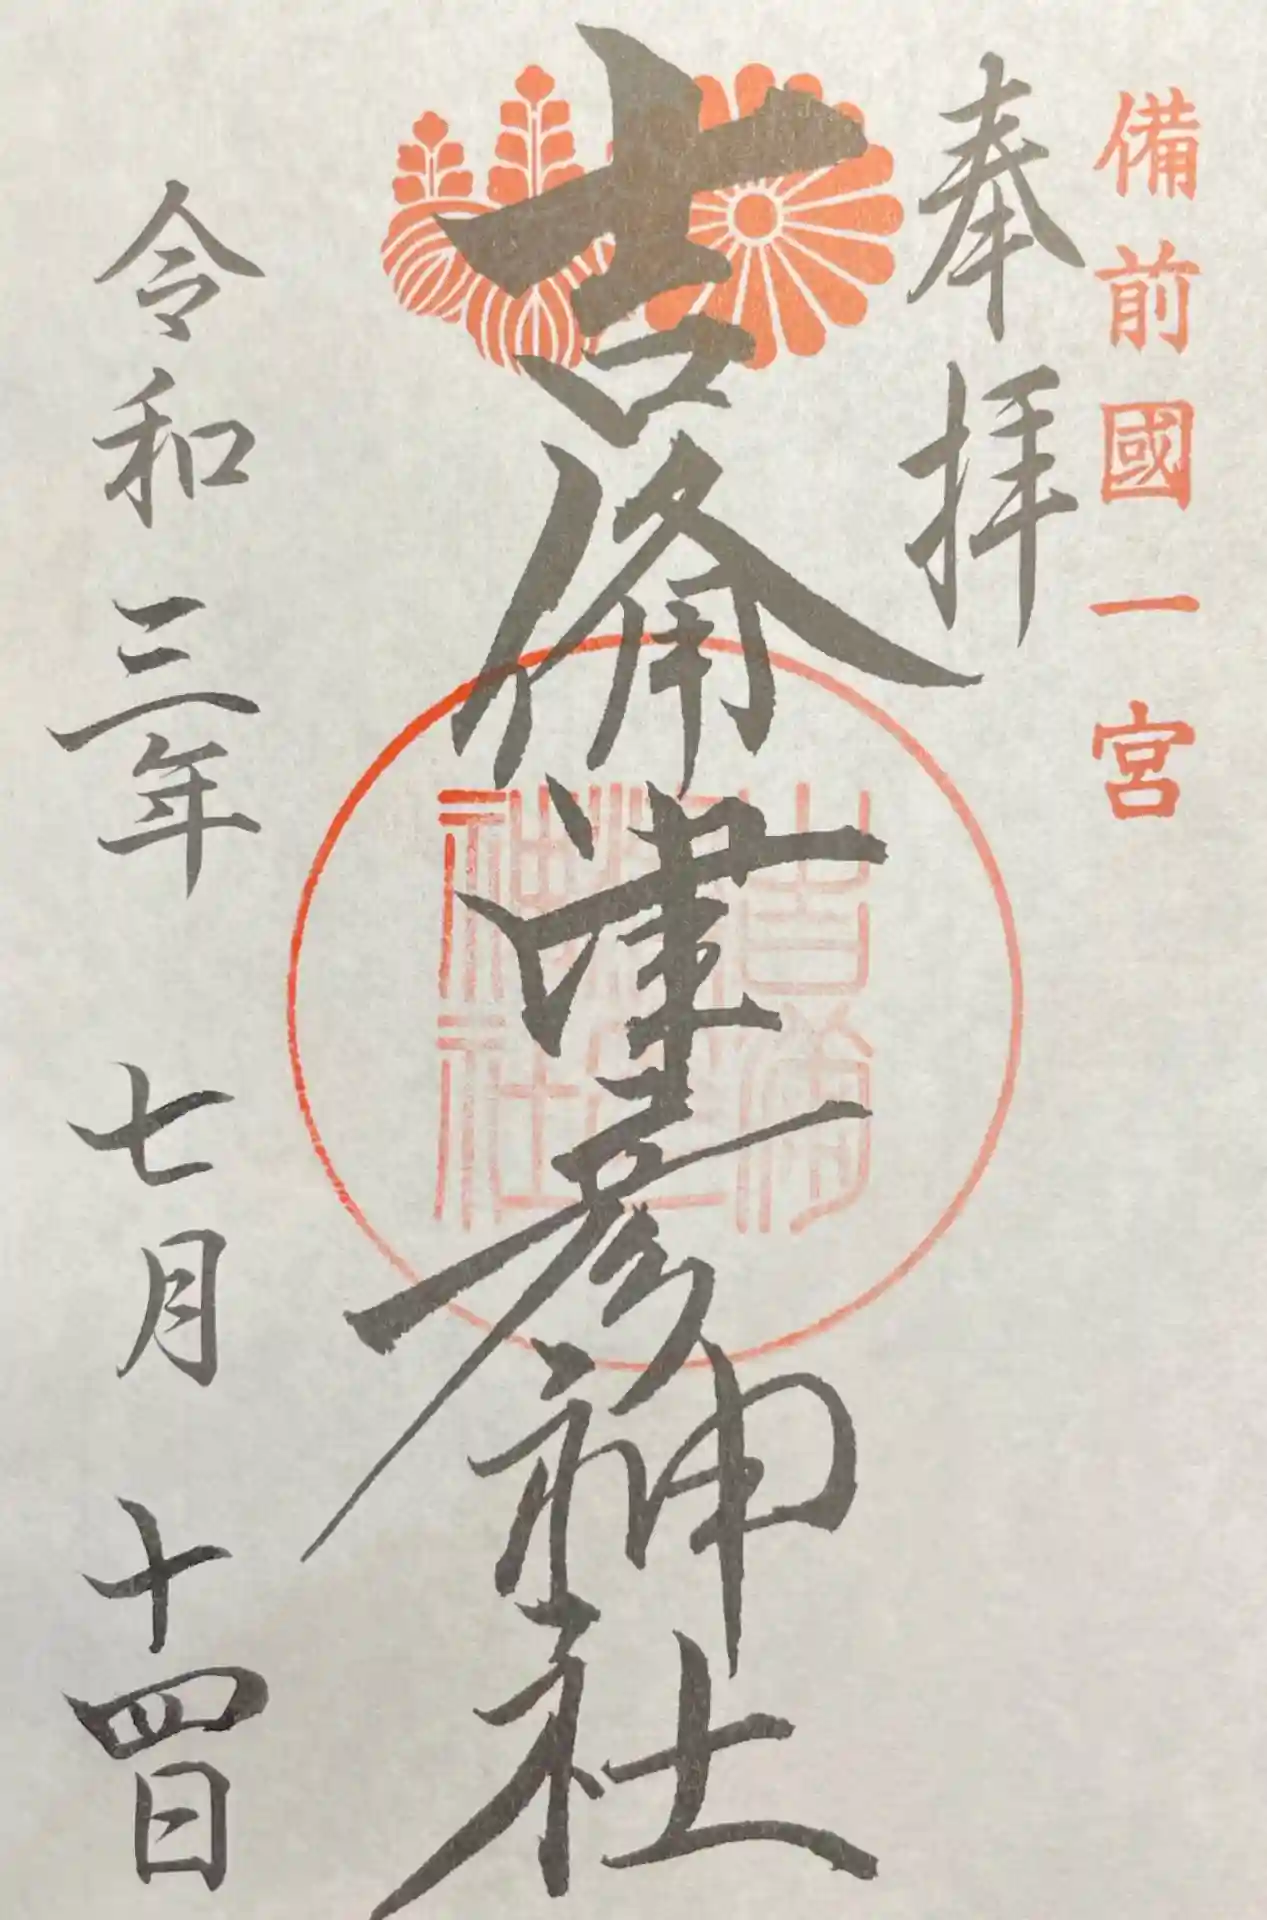 備前國一宮
奉拝
吉備津彦神社
吉備
津彦
神社
令和三年 七月 十四日